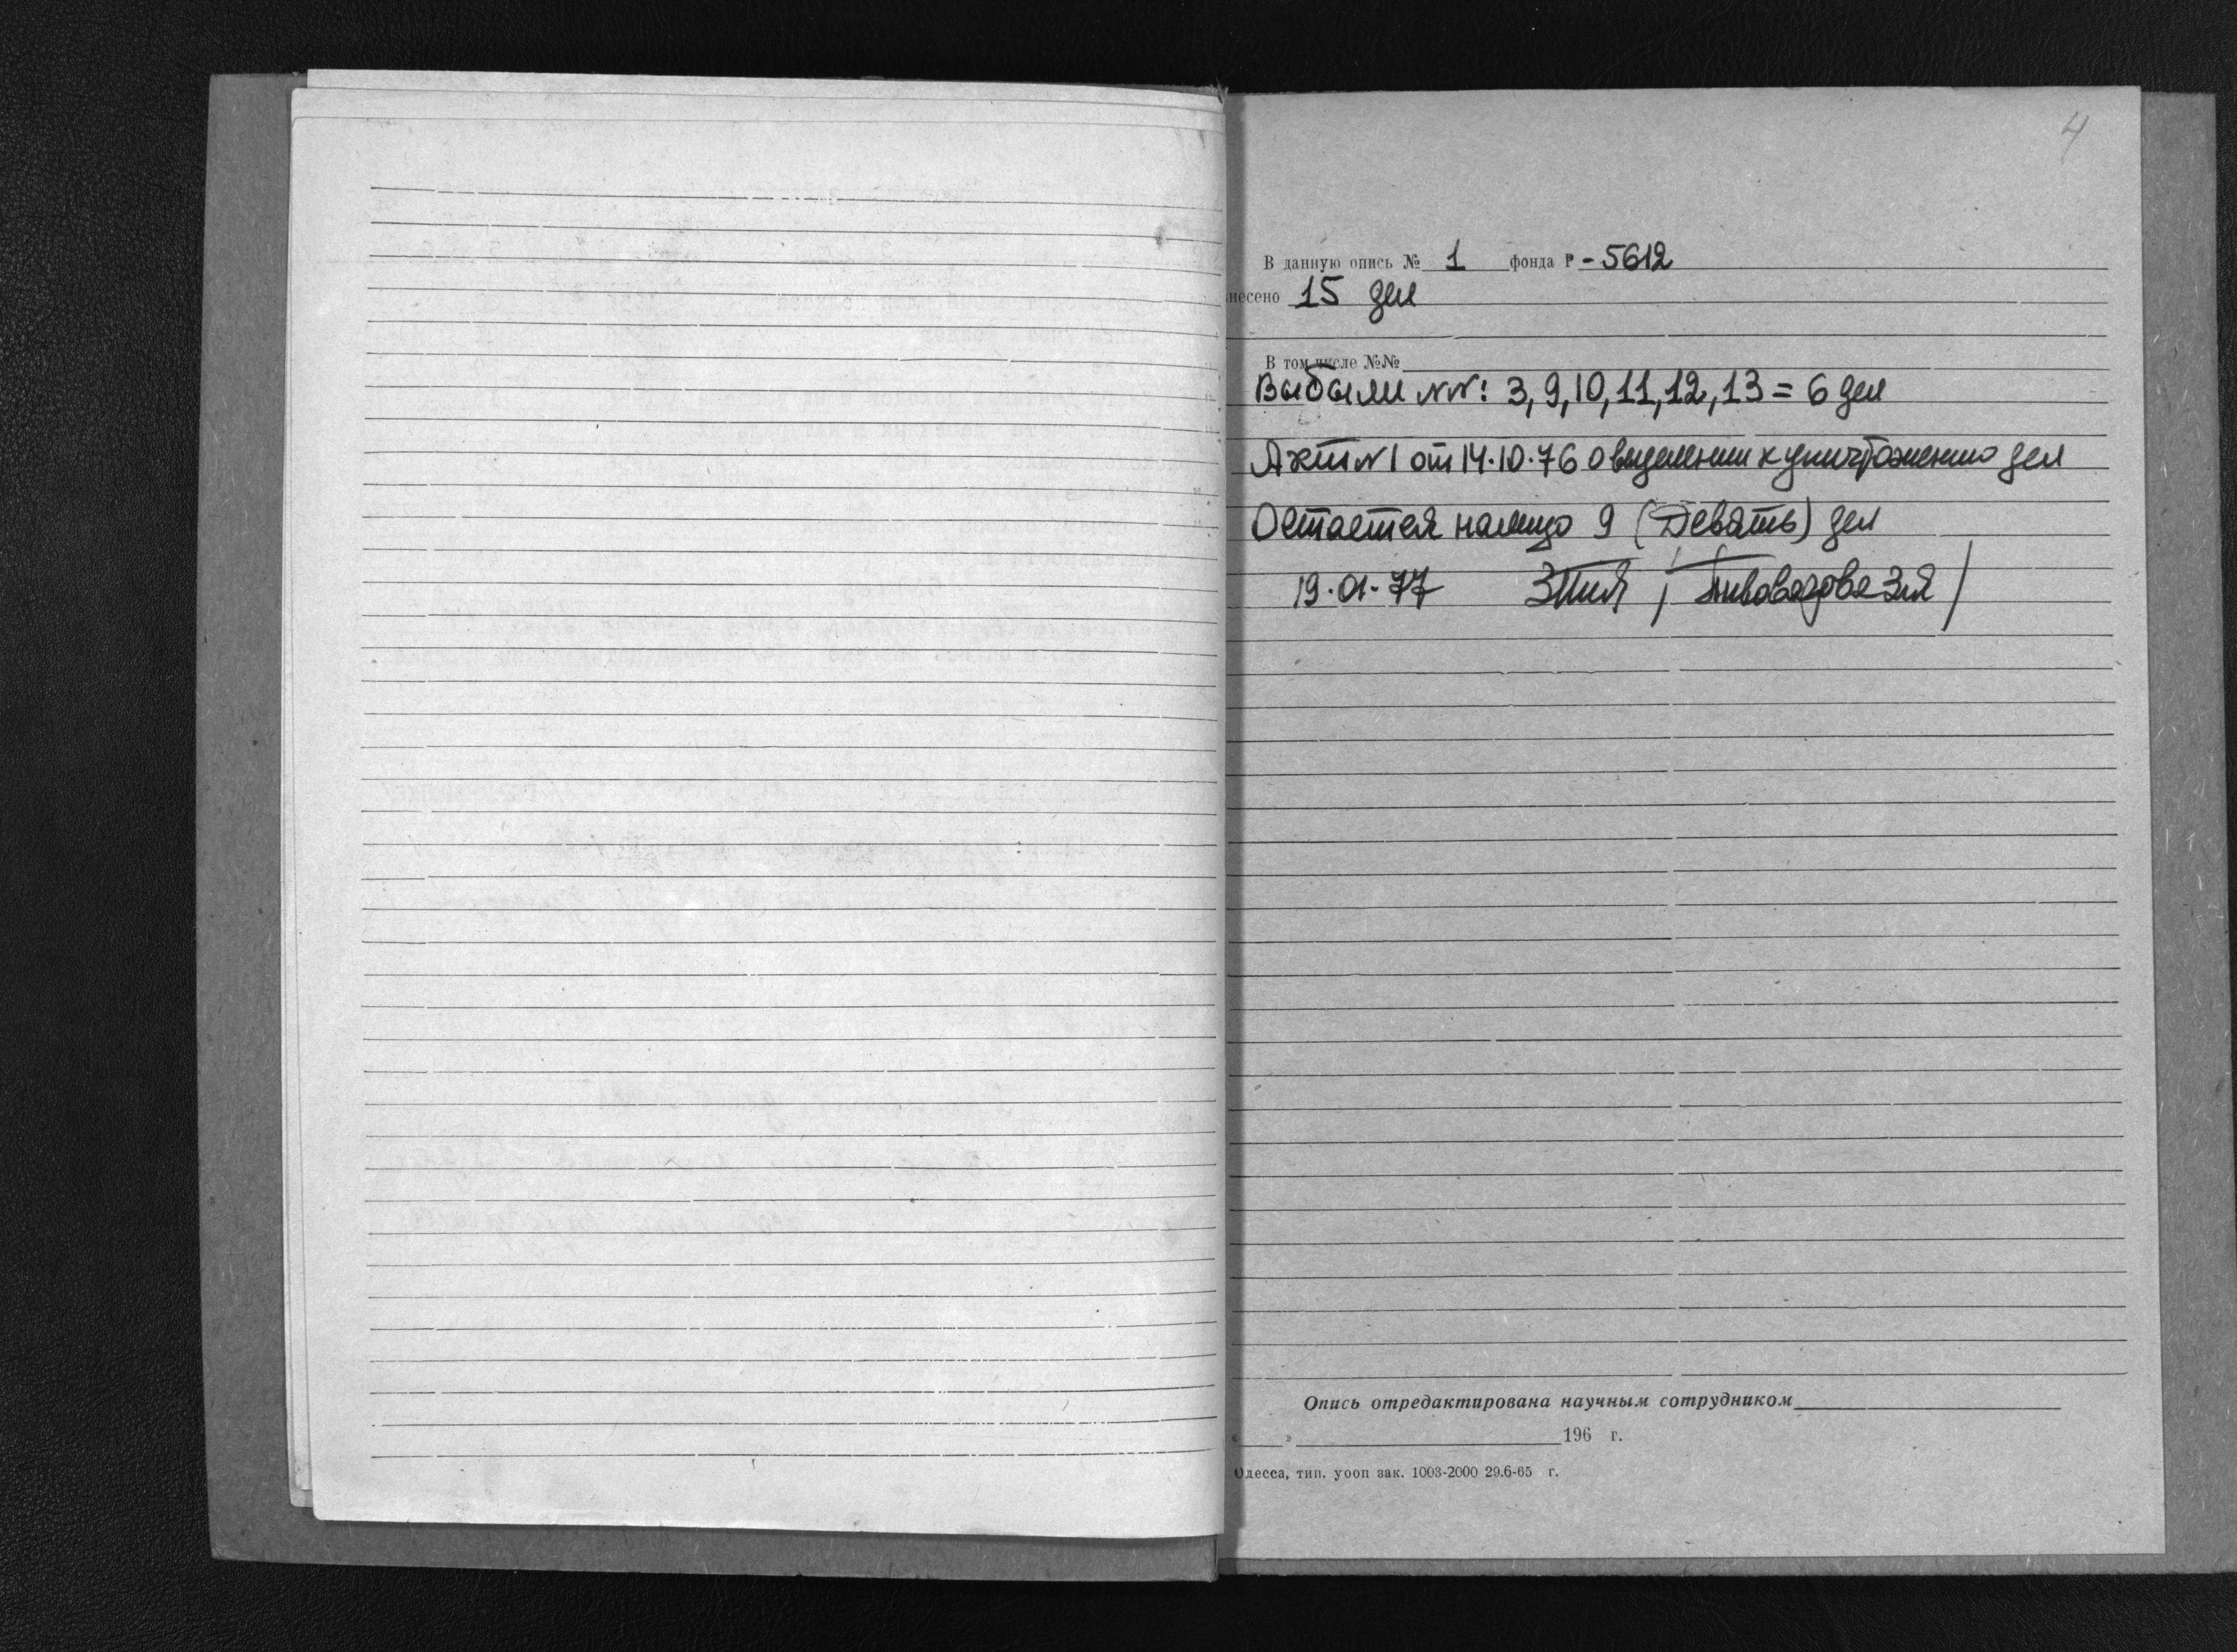 4
В данную опись № 1 фонда Р - 5612
внесено 15 дел
В том числе №№
Выбыли №№: 3, 9, 10, 11, 12, 13 = 6 дел
Акт №1 от 14.10.76 о выделении к уничтожению дел
Остается налицо 9 (Девять) дел
19.01.77 / Пивоварова З.Я /
Опись отредактирована научным сотрудником
« » 196 г.
Одесса, тип. уооп зак. 1003-2000 29.6-65 г.